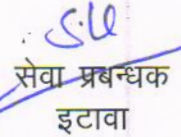 सेवा प्रबन्धक
इटावा